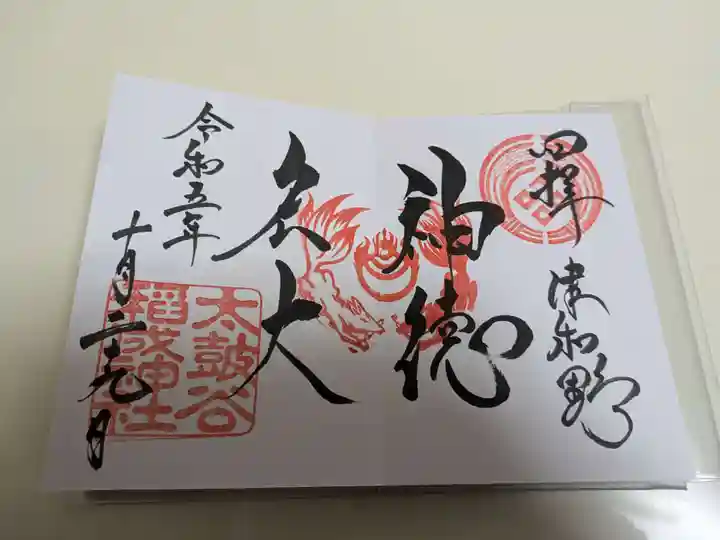 拝
津和野
神徳
宏大
令和五年
十月二十九日
太鼓谷
稲成神社